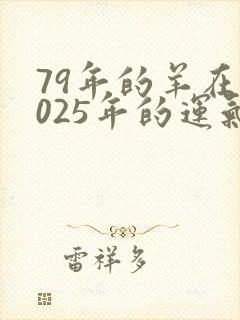 79年的羊在
025年的運氣
雷祥多